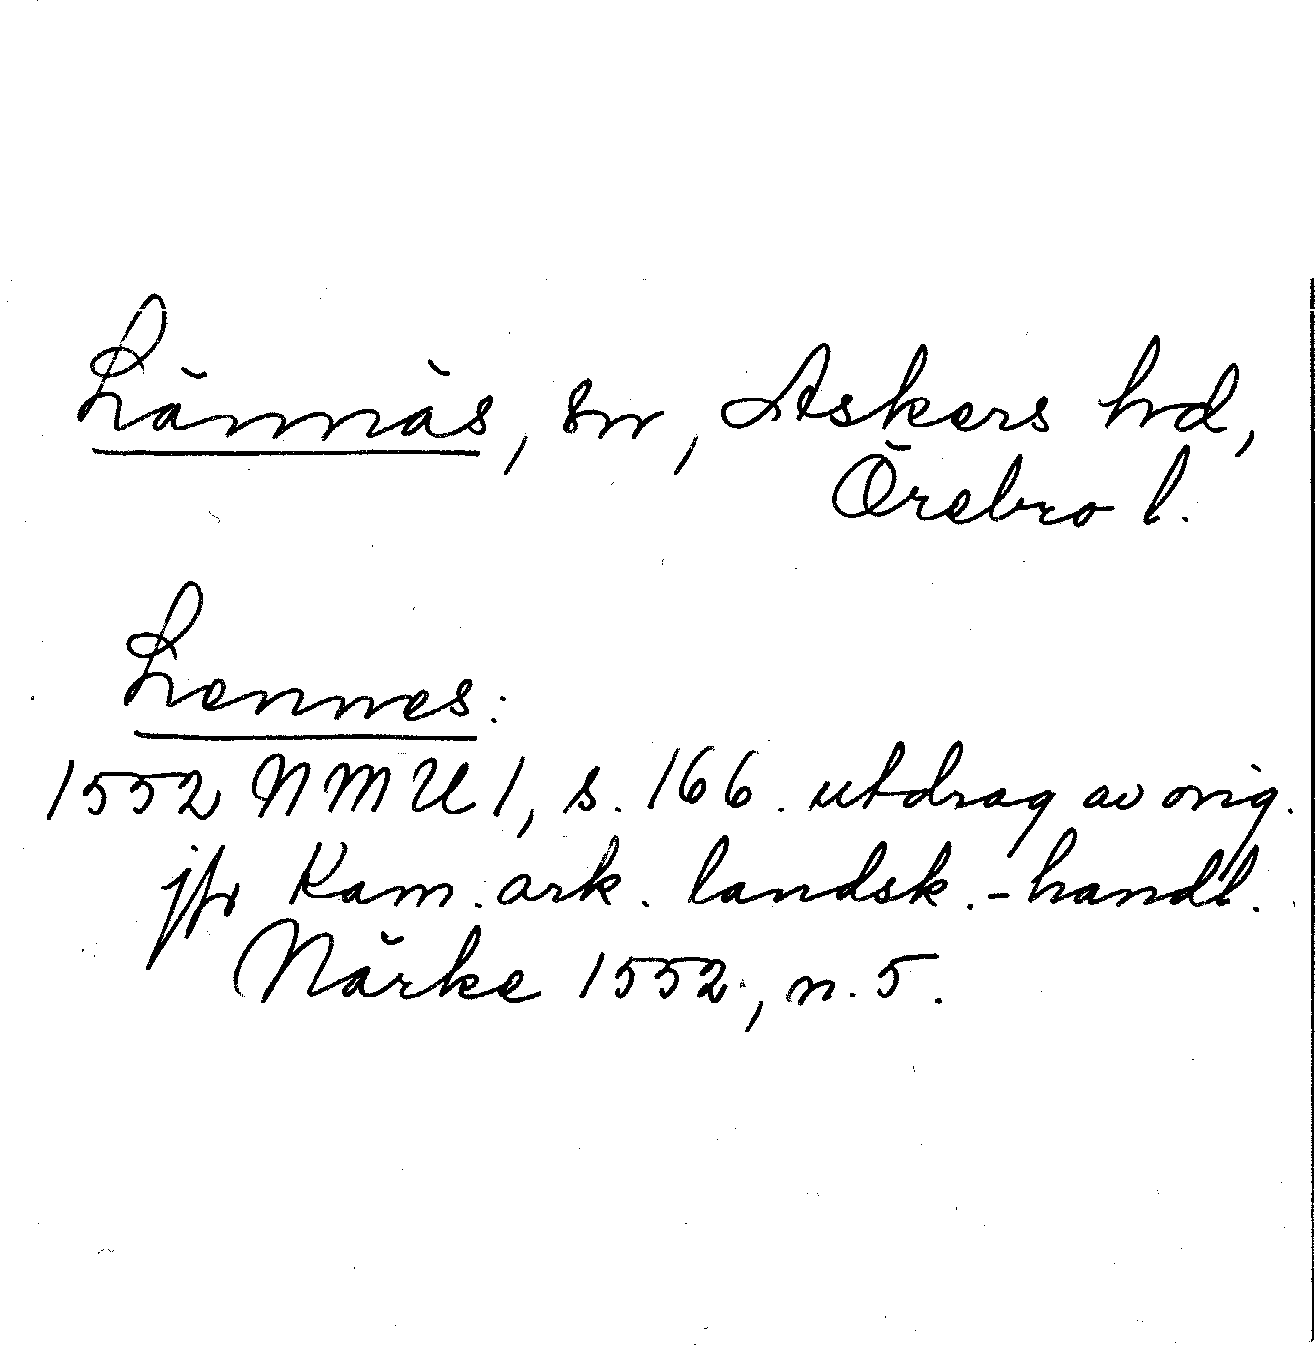 Lännäs, sn, Askers hd,
Örebro l.
Lennes:
1552 NMU 1, s. 166. utdrag av orig.
jfr Kam. ark. landsk.-handl.
Närke 1552, n. 5.